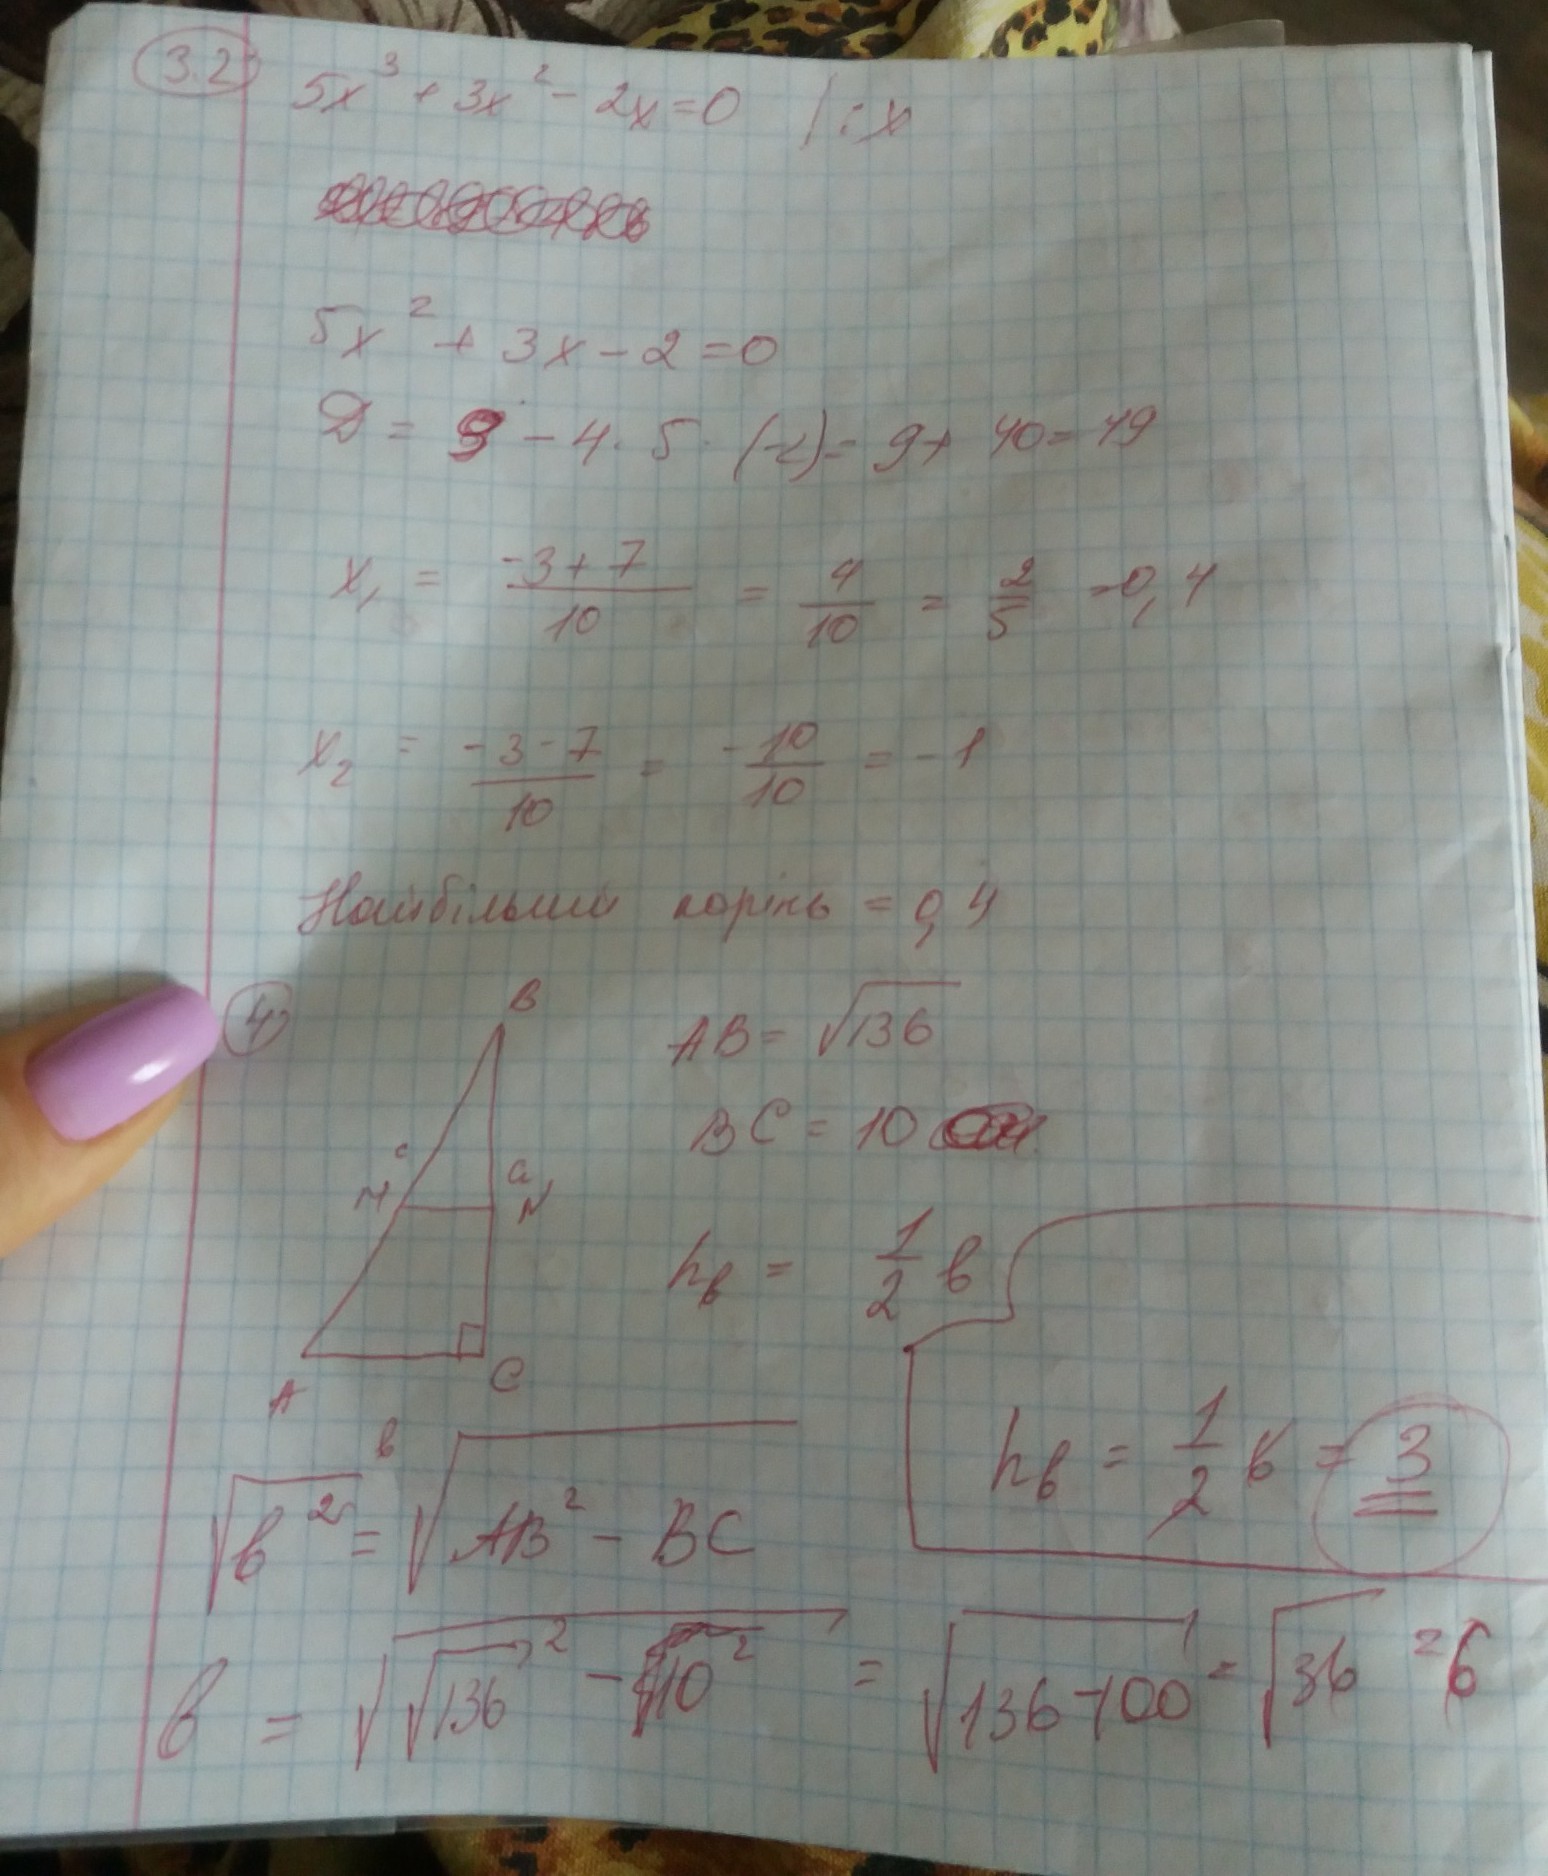 3.2 5x³ + 3x² - 2x = 0 | : x
5x² + 3x - 2 = 0
D = 9 - 4 · 5 · (-2) = 9 + 40 = 49
x₁ = (-3 + 7)/10 = 4/10 = 2/5 = 0,4
x₂ = (-3 - 7)/10 = -10/10 = -1
Найбільший корінь = 0,4
4)
B
AB = √136
BC = 10
c
a
M
N
h_b = 1/2 b
A
C
b
h_b = 1/2 b = 3
√b² = √(AB² - BC)
b = √(√136² - 10²) = √(136 - 100) = √36 = 6